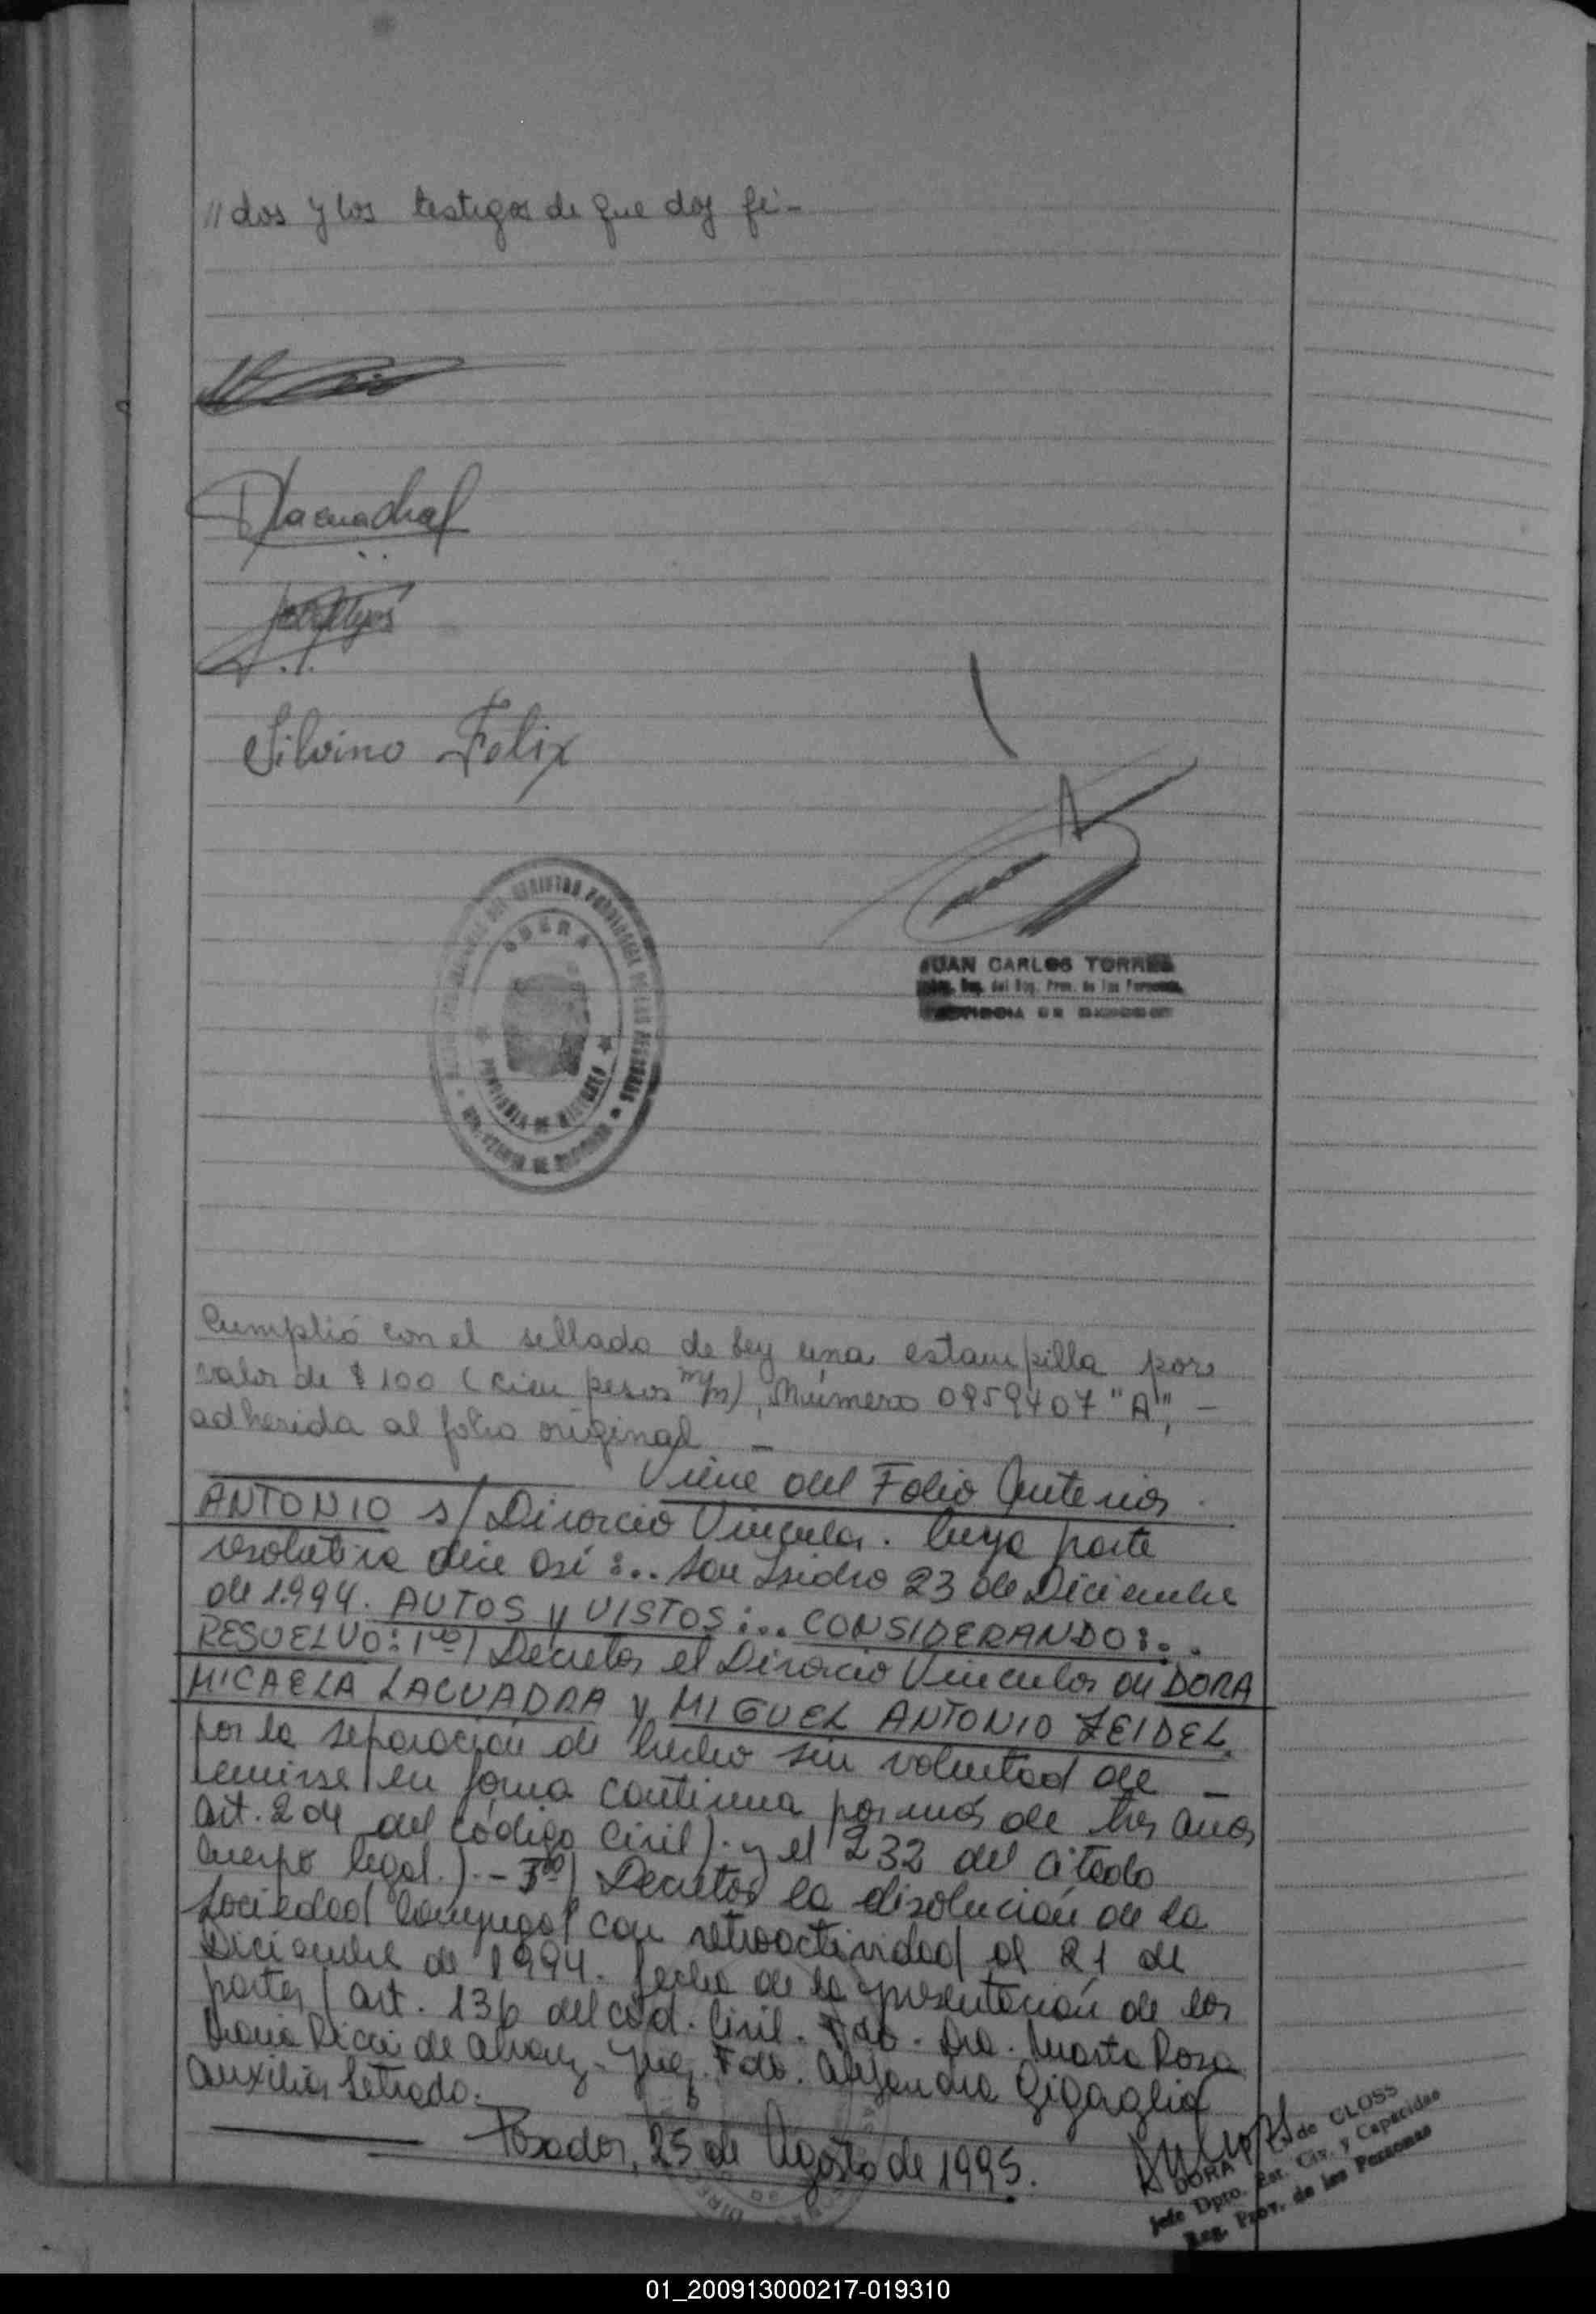 // dos y los testigos de que doy fé -
DLacuadra
Silvino Felix
OBERA
PROVINCIA DE MISIONES
JUAN CARLOS TORRES
del Reg. Prov. de las Personas
Cumplió con el sellado de ley una estampilla por
valor de $ 100 (cien pesos m/n), Número 0959407 "A", -
adherida al folio original -
Viene del Folio Anterior.
ANTONIO s/ Divorcio Vincular. Cuya parte
resolutiva dice así:.. San Isidro 23 de Diciembre
de 1.994. AUTOS y VISTOS:... CONSIDERANDO:..
RESUELVO: 1ro) Decretar el Divorcio Vincular de DORA
MICAELA LACUADRA y MIGUEL ANTONIO ZEIDEL,
por la separación de hecho sin voluntad de -
unirse en forma continua por más de tres años
Art. 204 del Código Civil). y el 232 del citado
Cuerpo legal.).- 3ro) Decretar la disolución de la
Sociedad Conyugal con retroactividad al 21 de
Diciembre de 1994. fecha de la presentación de las
partes (art. 136 del Cód. Civil. Fdo. Dra. Marta Rosa
de Alvarez - Juez. Fdo. Alejandra Gigaglia
Auxiliar Letrado.
Posadas, 25 de Agosto de 1995.
DORA de CLOSS
Jefe Dpto. Est. Civ. y Capacidad
Reg. Prov. de las Personas
01_200913000217-019310